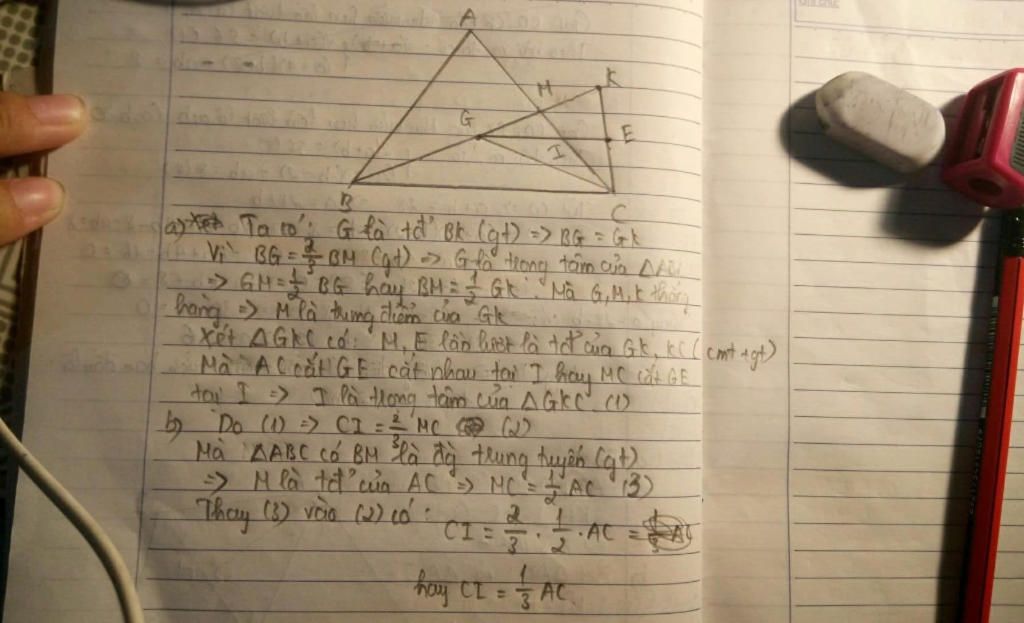 A
M
K
G
E
I
B
C
a) Ta có: G là tđ' BK (gt) => BG = GK
Vì BG = 2/3 BM (gt) => G là trọng tâm của Δ
=> GM = 1/2 BG hay BM = 1/2 GK. Mà G, M, K thẳng
hàng => M là trung điểm của GK
Xét ΔGKC có: M, E lần lượt là tđ' của GK, KC (cmt + gt)
Mà AC cắt GE cắt nhau tại I hay MC cắt GE
tại I => I là trọng tâm của ΔGKC (1)
b) Do (1) => CI = 2/3 MC (2)
Mà ΔABC có BM là đg trung tuyến (gt)
=> M là tđ' của AC => MC = 1/2 AC (3)
Thay (3) vào (2) có: CI = 2/3 . 1/2 . AC =
hay CI = 1/3 AC.